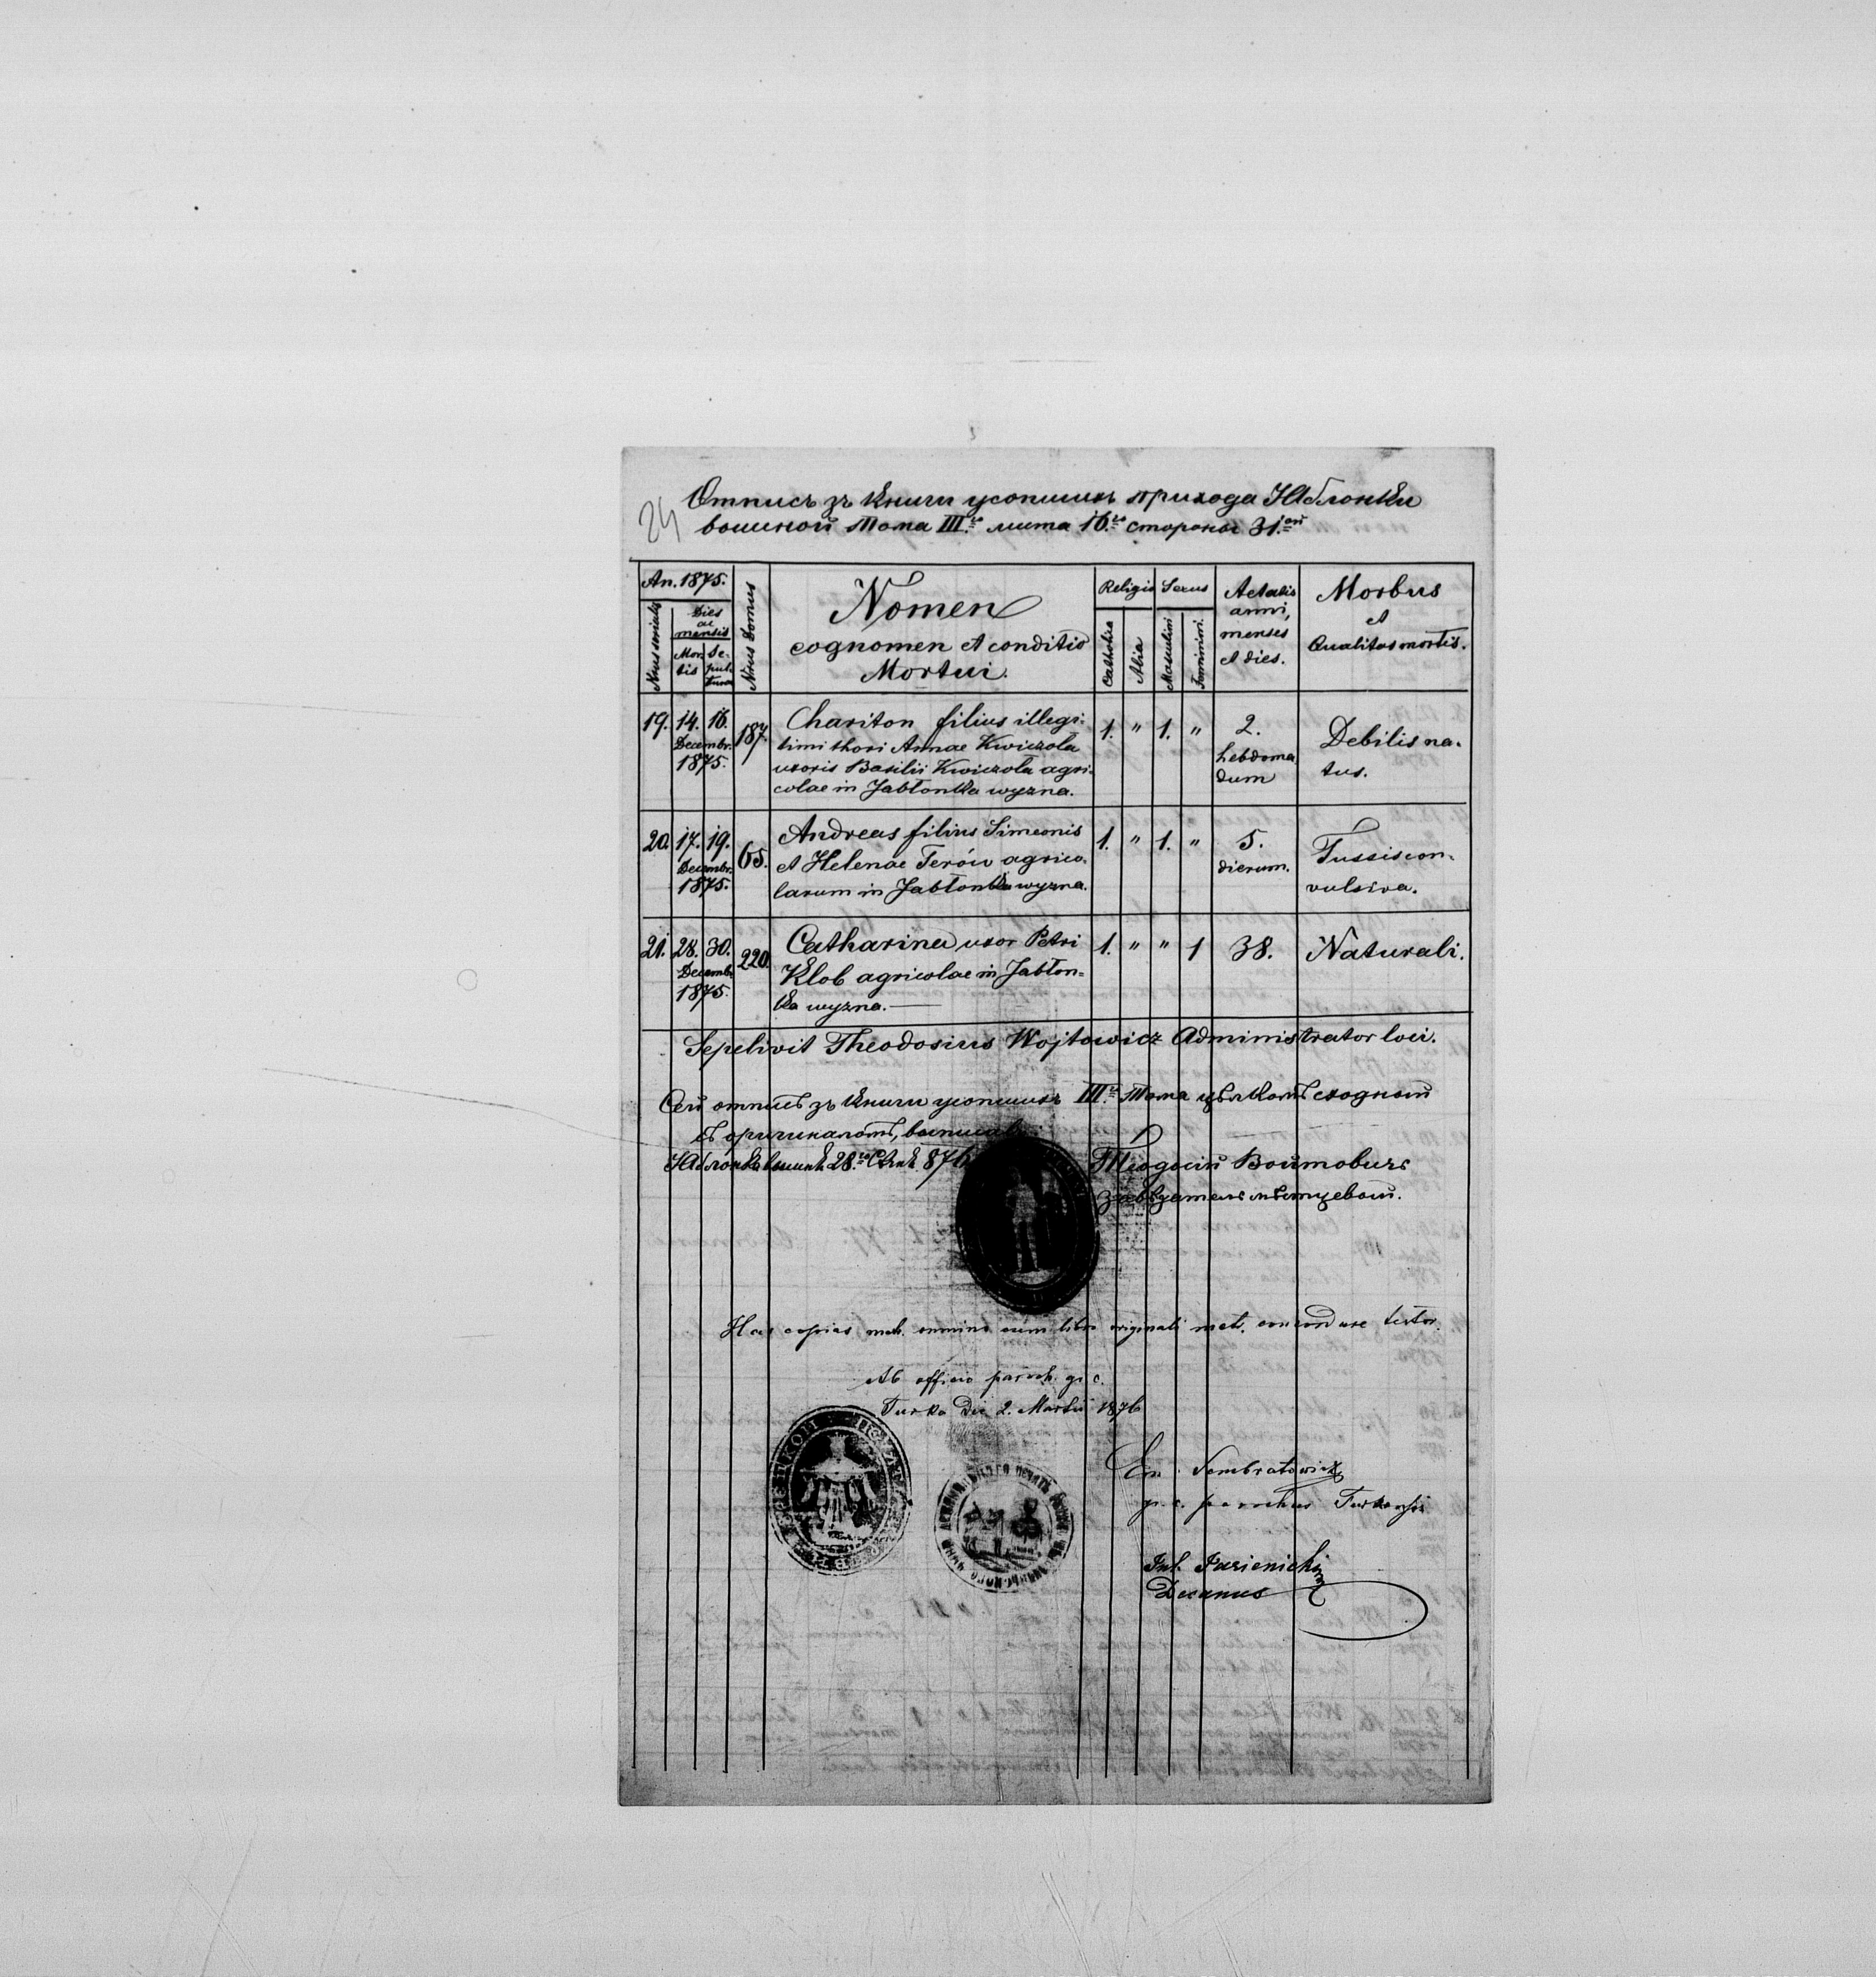 24
Отпись зъ Книги усопшихъ прихода Яблонки
вышной Тома III.го листа 16.го стороны 31.ой
An. 1875.
Nrus serialis
Dies ac mensis
Mortis
Sepulturae
Nrus Domus
Nomen
cognomen et conditio
Mortui.
Religio
Catholica
Alia
Sexus
Masculini
Feminini.
Aetatis
anni,
menses
et dies.
Morbus
et
Qualitas mortis.
19. 14. 16. 187. Chariton filius illegi- 1. " 1. " 2. Debilis na-
Decembr. timi thori Annae Kwiczoła hebdoma tus.
1875. uxoris Basilii Kwiczoła agri- dum
colae in Jabłonka wyzna.
20. 17. 19. 65. Andreas filius Simeonis 1. " 1. " 5. Tussis con-
Decembr. et Helenae Terów agrico- dierum. vulsiva.
1875. larum in Jabłonka wyzna.
21. 28. 30. 220. Catharina uxor Petri 1. " " 1 38. Naturali.
Decembr. Klob agricolae in Jabłon-
1875. ka wyzna.
Sepelivit Theodosius Wojtowicz Administrator loci.
Сей отписъ зъ Книги усопшихъ III. Тома цѣлкомъ сходный
съ оригиналомъ,
Яблонка вышня 28.го 876
Теодосій Войтовичъ
завѣдатель мѣстцевый.
Has copias metr. omnino cum libro originali metr. concordare testor.
Ab officio paroch. gr. c.
Turka Die 2. Martii 1876
Em. Sembratowicz
gr. c. parochus Turkensis
Jul. Jasienicki
Decanus